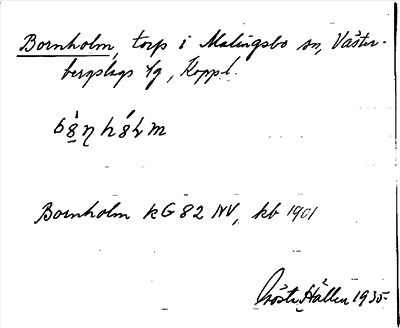 Bornholm, torp i Malingsbo sn, Väster-
bergslags tg, Koppl.
Bornholm KG 82 NV, kb 1901
Gösta Hallén 1935